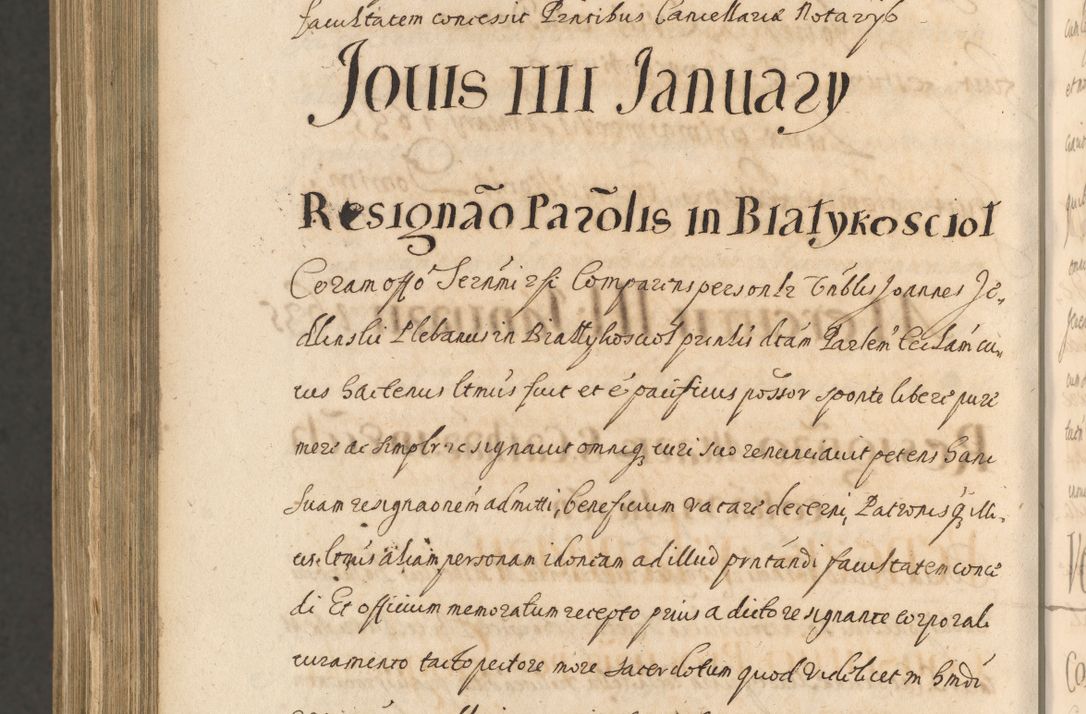 facultatem concessit Pntibus Cancellariæ Notaryb
Jouis IIII January
Resignão Parölis in Białykosciol
Coram offo Sernmi rsi Comparens personlr Vnblis Joannes Je„
dlinskii Plebanus in Biallykosciol pnlis dtam Parlem Ecclam cu„
ius hactenus ltmus fuit et e pacificus possor sponte libere pure
mere ac simplr resignauit omniq iuri suo renunciauit petens hanc
suam resignaonem admitti, beneficium vacare decerni, Patronis q illi„
ius ltmis aliam personam idoneam ad illud pntandi facultatem conce
di Et officium memoratum recepto prius a dicto resignante corporali
iuramento tacto pectore more sacerdotum quod videlicet in hmdi